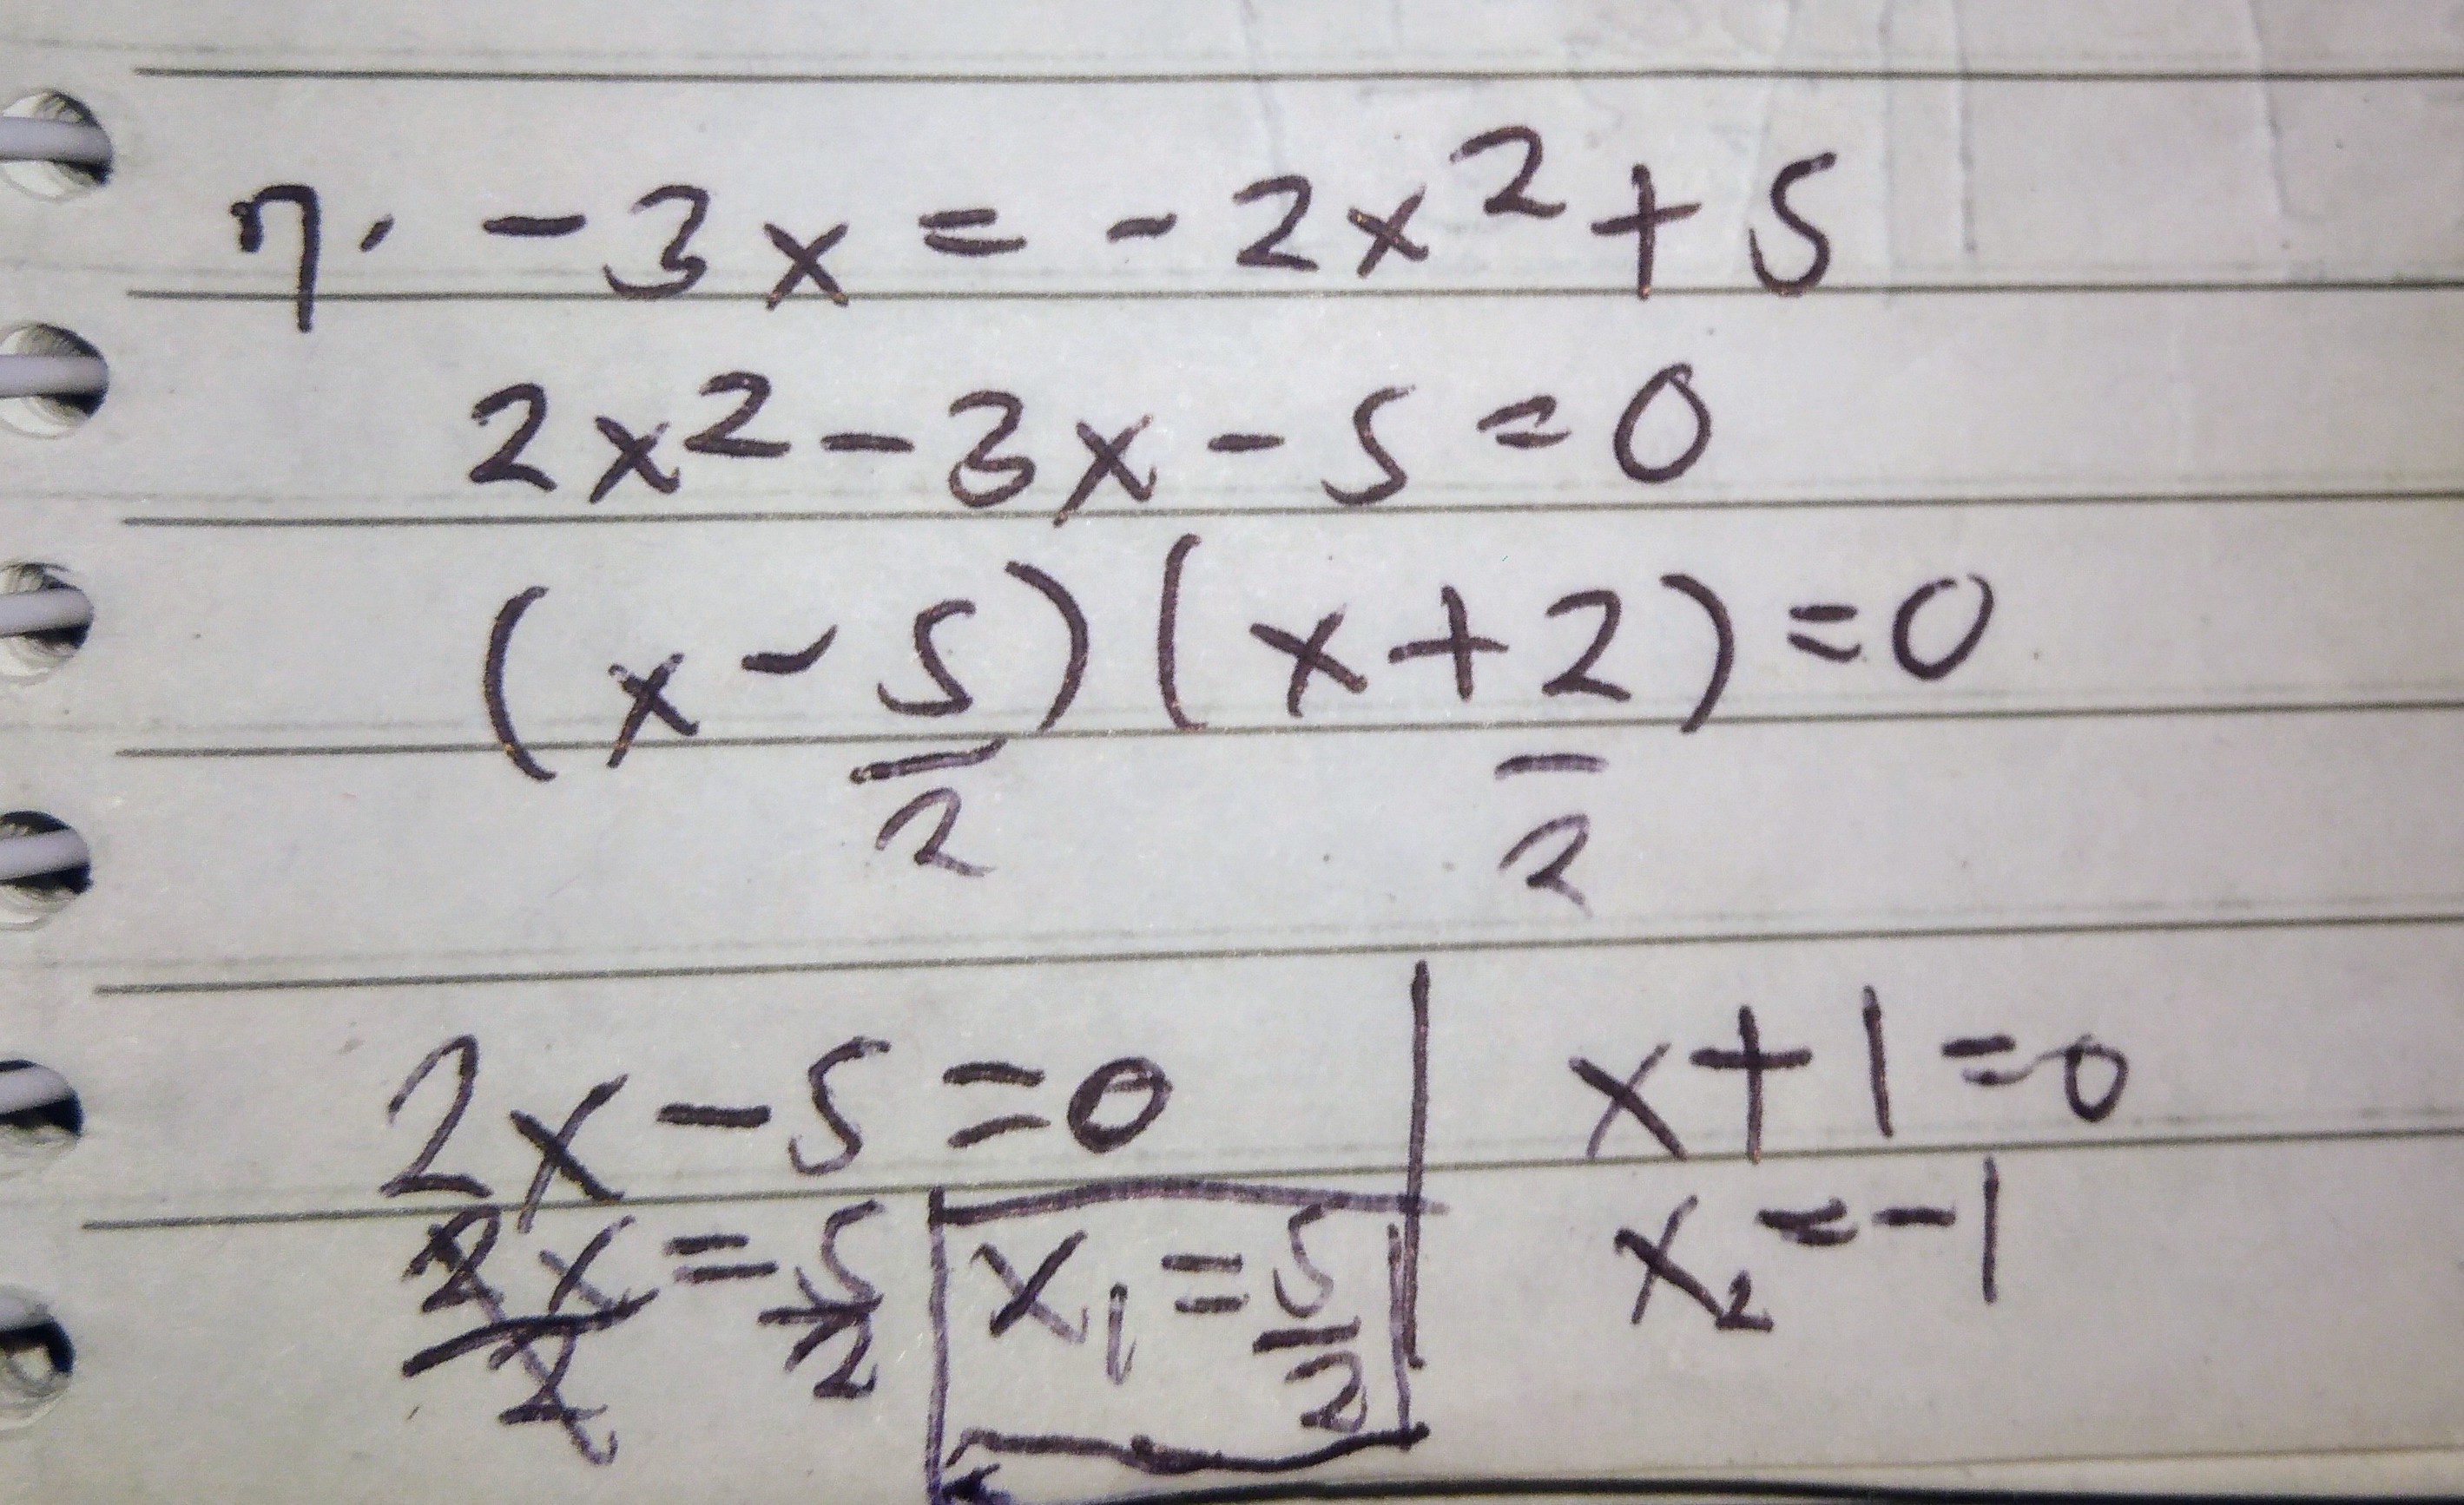 7. -3x = -2x² + 5
2x² - 3x - 5 = 0
(x - 5/2)(x + 2/2) = 0
2x - 5 = 0 | x + 1 = 0
2x/2 = 5/2 | x₁ = 5/2 | x₂ = -1